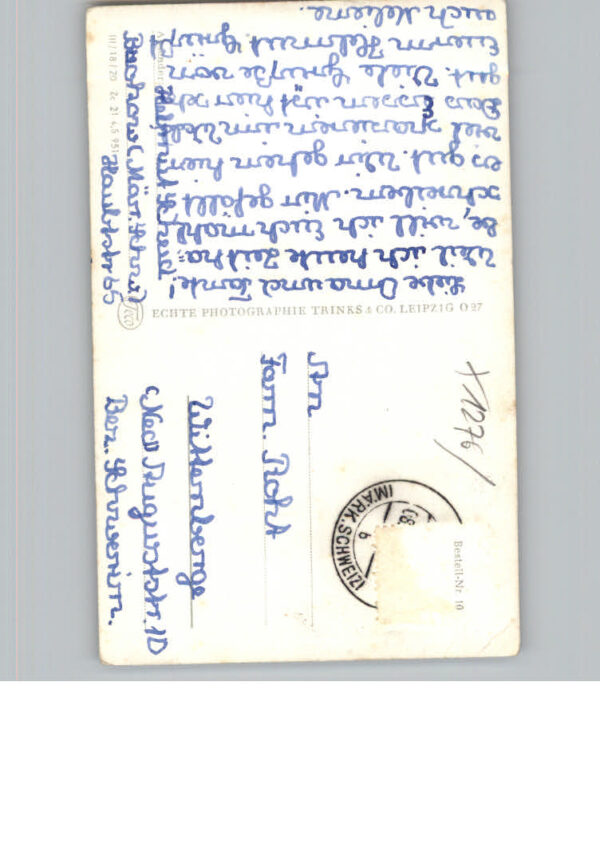 Liebe Oma und Tante!
Weil ich heute Zeit ha=
be, will ich Euch mahl
schreiben. Mir gefällt
es gut. Wir gehen hier
viel spazieren im Wal
Das Essen ist hier seh
gut. Viele Grüße von
Euerm Helmut Grüßt
auch Helene.
Absender Helmut
Buckow (Märk. Schweiz)
Hauptstr 65
III/18/20 2c 21 4.5 951
ECHTE PHOTOGRAPHIE TRINKS & CO. LEIPZIG O 27
Trico
An
Fam. Roht
Wittenberge
Auguststr. 1D
Bez. Schwerin.
(MÄRK. SCHWEIZ)
Bestell-Nr 10
1276/